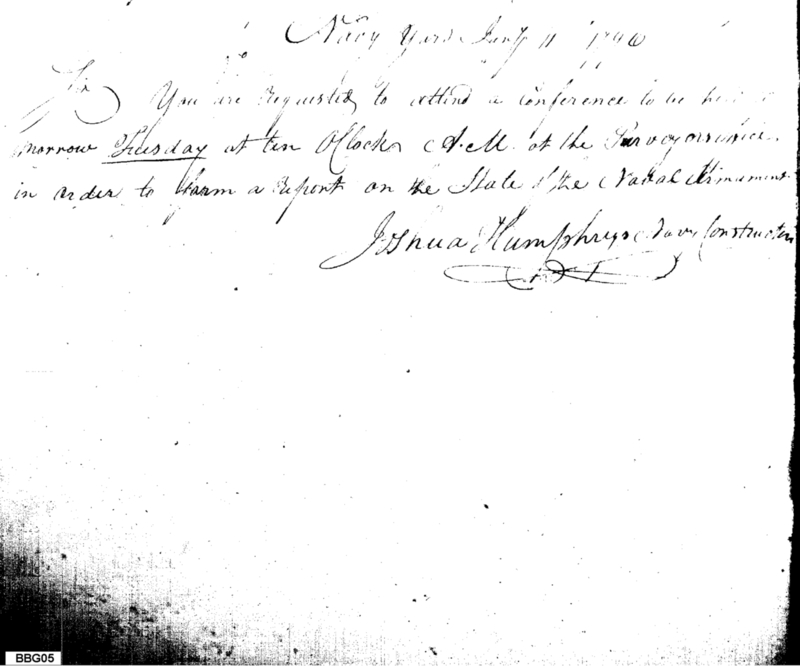 Navy Yard Jany 11 1796
Sir
You are Requested to attend a conference to be held to
morrow Tuesday at ten OClock A.M. at the Surveyors office
in order to form a Report on the State of the Naval Armament
Joshua Humphreys Navy Constructor
BBG05